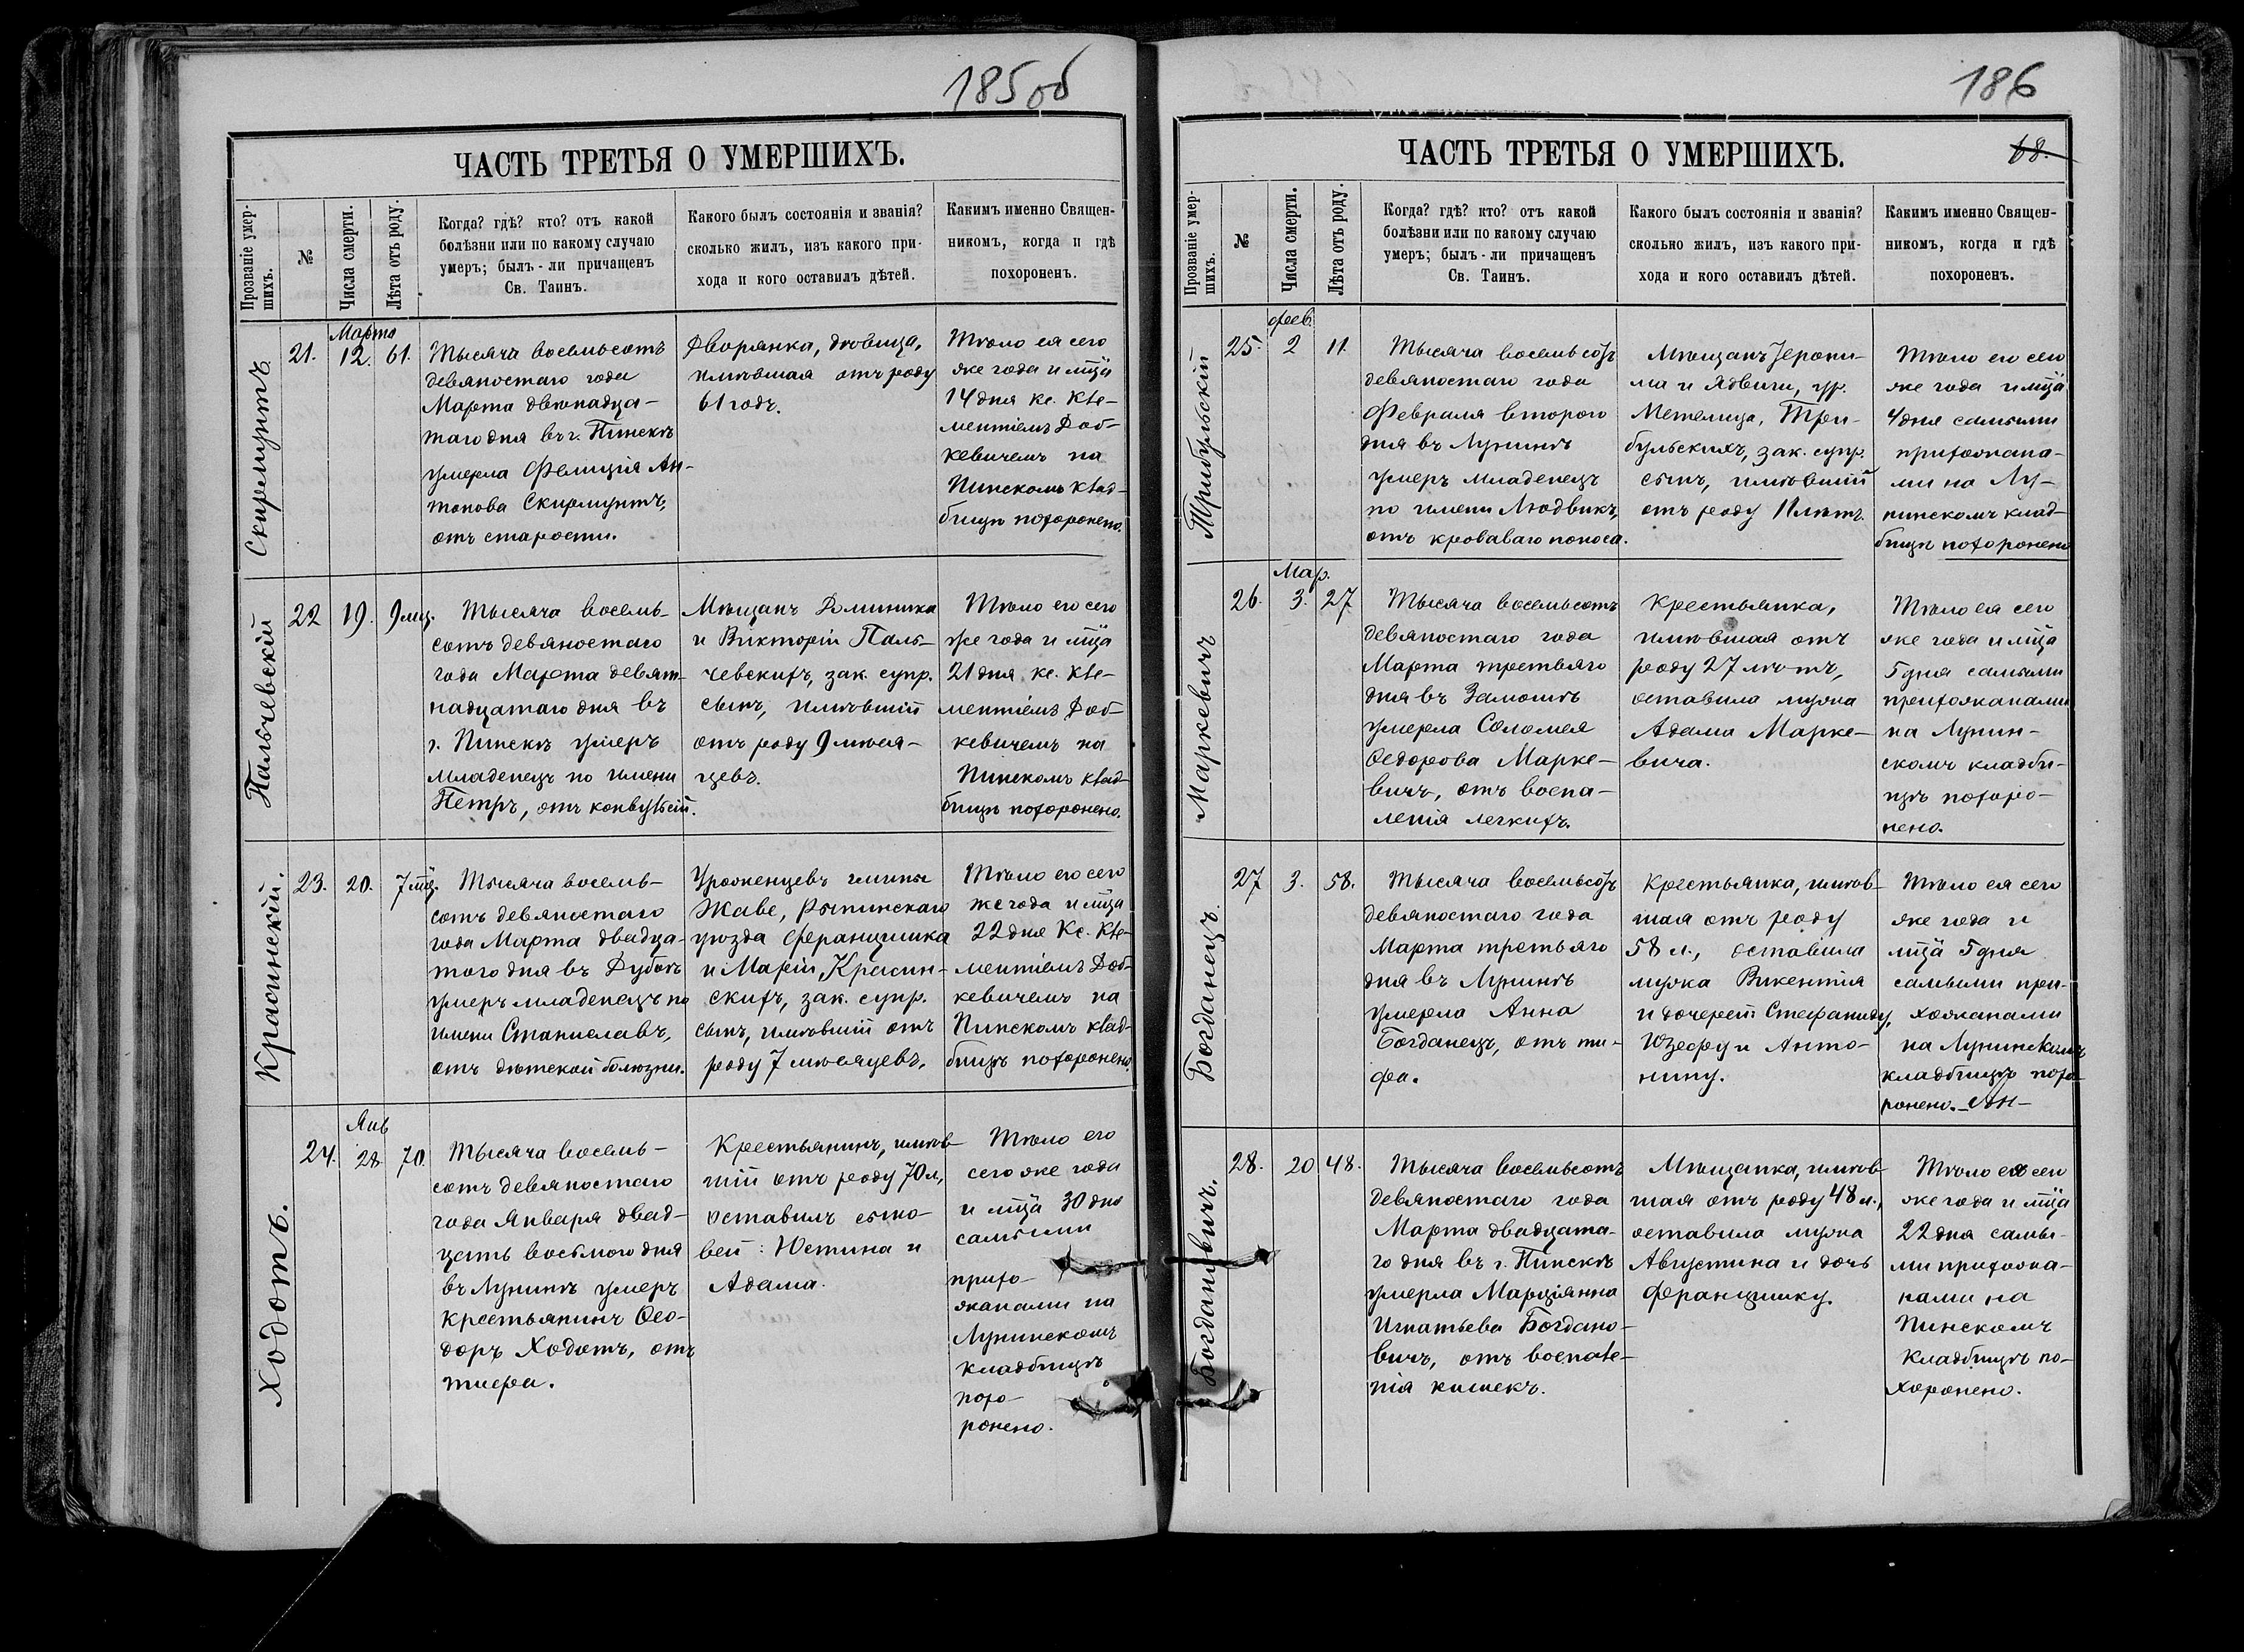 185об
ЧАСТЬ ТРЕТЬЯ О УМЕРШИХЪ.
Прозваніе умер-
шихъ.
№
Числа смерти.
Лѣта отъ роду.
Когда? гдѣ? кто? отъ какой
болѣзни или по какому случаю
умеръ; былъ-ли причащенъ
Св. Таинъ.
Какого былъ состоянія и званія?
сколько жилъ, изъ какого при-
хода и кого оставилъ дѣтей.
Какимъ именно Священ-
никомъ, когда и гдѣ
похороненъ.
Скирмунтъ
21.
Марта
12.
61.
Тысяча восемьсотъ
девяностаго года
Марта двѣнадца-
таго дня въ г. Пинскѣ
умерла Фелиція Ан-
тонова Скирмунтъ,
отъ старости.
Дворянка, дѣвица,
имѣвшая отъ роду
61 годъ.
Тѣло ея сего
же года и мца
14 дня кс. Кле-
ментіемъ Доб-
кевичемъ на
Пинскомъ клад-
бищѣ похоронено.
Пальчевскій
22
19.
9 мц.
Тысяча восемь-
сотъ девяностаго
года Марта девят-
надцатаго дня въ
г. Пинскѣ умеръ
младенецъ по имени
Петръ, отъ конвульсій.
Мѣщанъ Доминика
и Викторіи Паль-
чевскихъ, зак. супр.
сынъ, имѣвшій
отъ роду 9 мѣся-
цевъ.
Тѣло его сего
же года и мца
21 дня кс. Кле-
ментіемъ Доб-
кевичемъ на
Пинскомъ клад-
бищѣ похоронено.
Красинскій.
23.
20.
7 мц.
Тысяча восемь-
сотъ девяностаго
года Марта двадца-
таго дня въ Дубоѣ
умеръ младенецъ по
имени Станиславъ,
отъ дѣтской болѣзни.
Урожденцевъ гмины
Жаве, Рыпинскаго
уѣзда Францишка
и Маріи Красин-
скихъ, зак. супр.
сынъ, имѣвшій отъ
роду 7 мѣсяцевъ.
Тѣло его сего
же года и мца
22 дня Кс. Кле-
ментіемъ Доб-
кевичемъ на
Пинскомъ клад-
бищѣ похоронено.
Ходотъ.
24.
Янв
28.
70.
Тысяча восемь-
сотъ девяностаго
года Января двад-
цать восьмого дня
въ Лунинѣ умеръ
крестьянинъ Ѳео-
доръ Ходотъ, отъ
тифа.
Крестьянинъ, имѣв-
шій отъ роду 70 л,
оставилъ сыно-
вей: Юстина и
Адама.
Тѣло его
сего же года
и мца 30 дня
самыми
прихо-
жанами на
Лунинскомъ
кладбищѣ
похо-
ронено.
186
ЧАСТЬ ТРЕТЬЯ О УМЕРШИХЪ.
68.
Прозваніе умер-
шихъ.
№
Числа смерти.
Лѣта отъ роду.
Когда? гдѣ? кто? отъ какой
болѣзни или по какому случаю
умеръ; былъ-ли причащенъ
Св. Таинъ.
Какого былъ состоянія и званія?
сколько жилъ, изъ какого при-
хода и кого оставилъ дѣтей.
Какимъ именно Священ-
никомъ, когда и гдѣ
похороненъ.
Трибульскій
25.
фев.
2
11.
Тысяча восемьсотъ
девяностаго года
Февраля второго
дня въ Лунинѣ
умеръ младенецъ
по имени Людвикъ,
отъ кроваваго поноса.
Мѣщанъ Іерони-
ма и Ядвиги, ур.
Метелица, Три-
бульскихъ, зак. супр.
сынъ, имѣвшій
отъ роду 11 лѣтъ.
Тѣло его сего
же года и мца
4 дня самыми
прихожана-
ми на Лу-
нинскомъ клад-
бищѣ похоронено
Маркевичъ
26.
Мар.
3.
27
Тысяча восемьсотъ
девяностаго года
Марта третьяго
дня въ Замошѣ
умерла Саломея
Ѳедорова Марке-
вичъ, отъ воспа-
ленія легкихъ.
Крестьянка,
имѣвшая отъ
роду 27 лѣтъ,
оставила мужа
Адама Марке-
вича.
Тѣло ея сего
же года и мца
5 дня самыми
прихожанами
на Лунин-
скомъ кладби-
щѣ похоро-
нено.
Богданецъ.
27
3.
58.
Тысяча восемьсотъ
девяностаго года
Марта третьяго
дня въ Лунинѣ
умерла Анна
Богданецъ, отъ ти-
фа.
Крестьянка, имѣв-
шая отъ роду
58 л., оставила
мужа Викентія
и дочерей Стефаниду,
Юзефу и Анто-
нину.
Тѣло ея сего
же года и
мца 5 дня
самыми при-
хожанами
на Лунинскомъ
кладбищѣ похо-
ронено.
Богдановичъ.
28.
20
48.
Тысяча восемьсотъ
девяностаго года
Марта двадцата-
го дня въ г. Пинскѣ
умерла Марціянна
Игнатьева Богдано-
вичъ, отъ воспале-
нія кишекъ.
Мѣщанка, имѣв-
шая отъ роду 48 л.,
оставила мужа
Августина и дочь
Францишку.
Тѣло ея сего
же года и мца
22 дня самы-
ми прихожа-
нами на
Пинскомъ
кладбищѣ по-
хоронено.